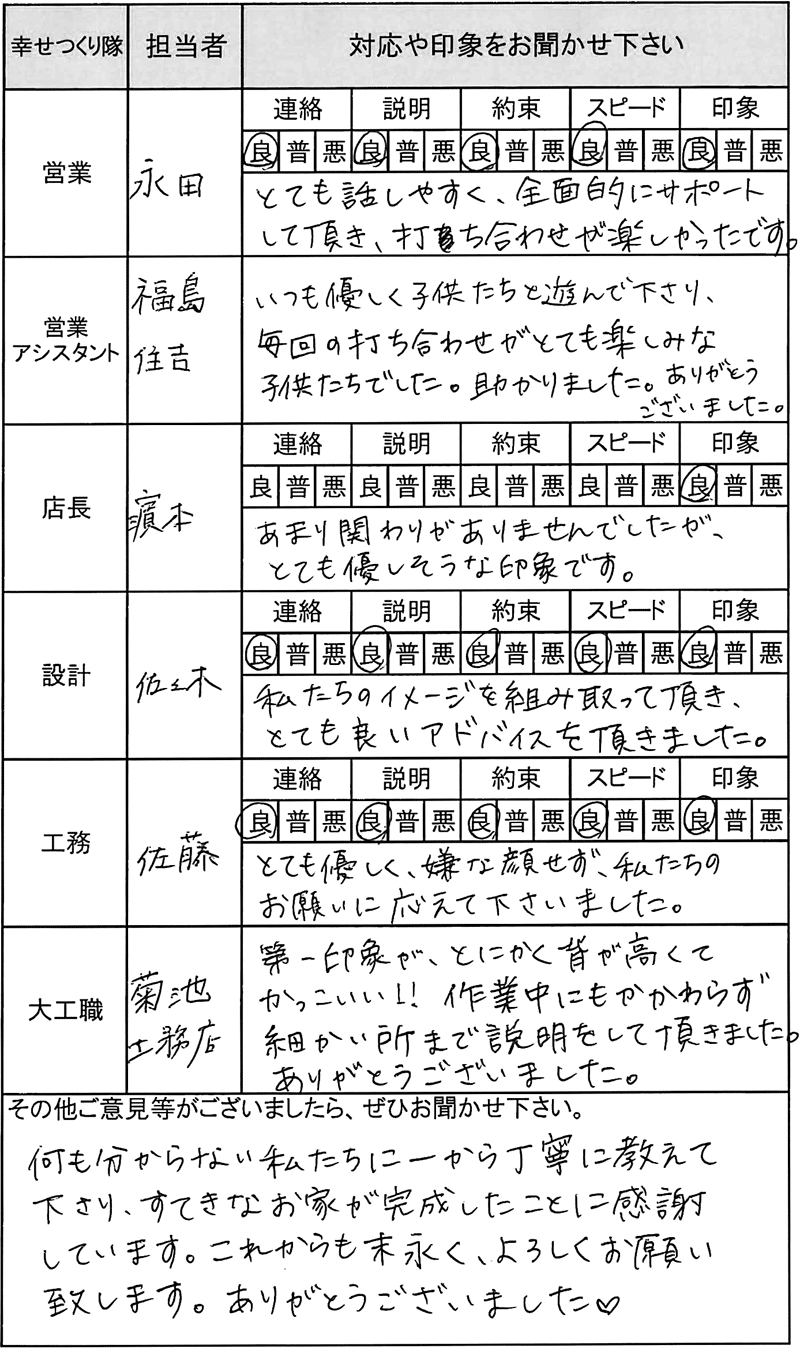 幸せつくり隊 担当者 対応や印象をお聞かせ下さい
連絡 説明 約束 スピード 印象
良 普 悪 良 普 悪 良 普 悪 良 普 悪 良 普 悪
営業 永田
とても話しやすく、全面的にサポート
して頂き、打ち合わせが楽しかったです。
営業
アシスタント
福島
住吉
いつも優しく子供たちと遊んで下さり、
毎回の打ち合わせがとても楽しみな
子供たちでした。助かりました。ありがとう
ございました。
連絡 説明 約束 スピード 印象
良 普 悪 良 普 悪 良 普 悪 良 普 悪 良 普 悪
店長 濱本
あまり関わりがありませんでしたが、
とても優しそうな印象です。
連絡 説明 約束 スピード 印象
良 普 悪 良 普 悪 良 普 悪 良 普 悪 良 普 悪
設計 佐々木
私たちのイメージを組み取って頂き、
とても良いアドバイスを頂きました。
連絡 説明 約束 スピード 印象
良 普 悪 良 普 悪 良 普 悪 良 普 悪 良 普 悪
工務 佐藤
とても優しく、嫌な顔せず、私たちの
お願いに応えて下さいました。
大工職
菊池
工務店
第一印象が、とにかく背が高くて
かっこいい!! 作業中にもかかわらず
細かい所まで説明をして頂きました。
ありがとうございました。
その他ご意見等がございましたら、ぜひお聞かせ下さい。
何も分からない私たちに一から丁寧に教えて
下さり、すてきなお家が完成したことに感謝
しています。これからも末永く、よろしくお願い
致します。ありがとうございました♡